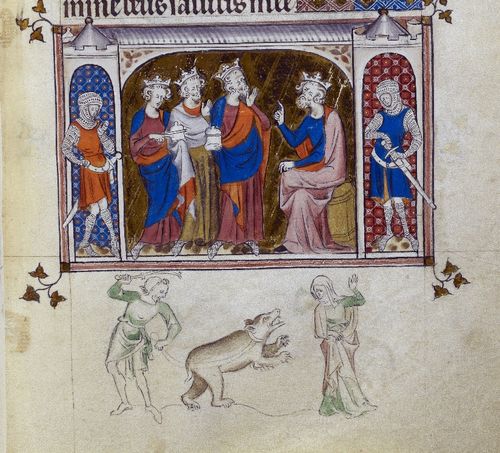 mine deus salutis mee